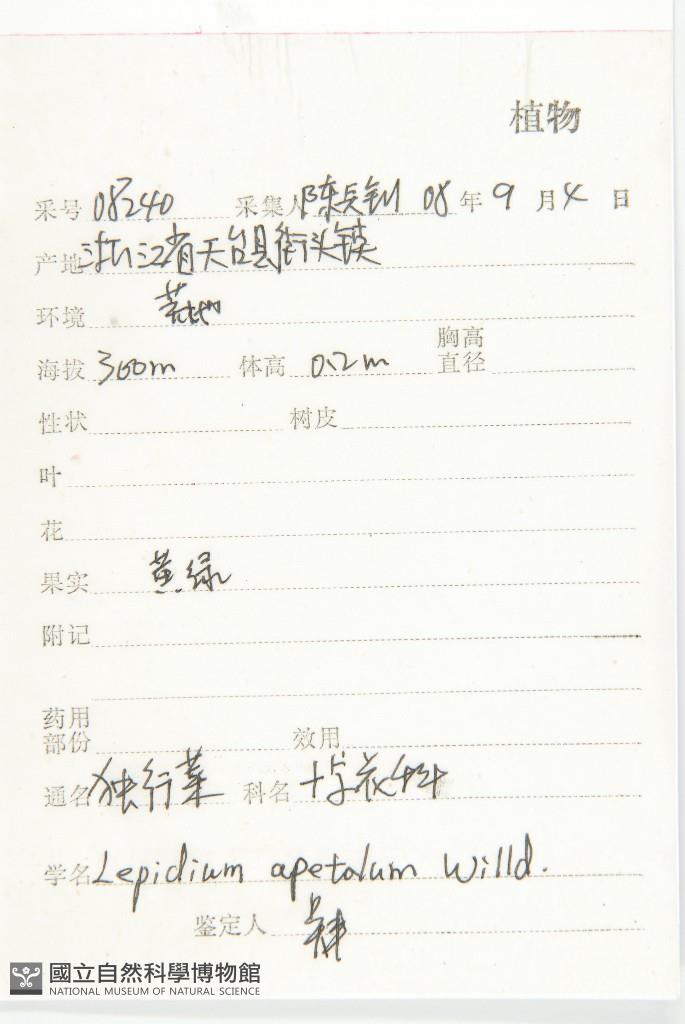 植物
采号 08240 采集人 陈兵钊 08 年 9 月 4 日
产地 浙江省天台县街头镇
环境 荒地
海拔 300m 体高 0.2m 胸高直径
性状 树皮
叶
花
果实 黄绿
附记
药用部份 效用
通名 独行菜 科名 十字花科
学名 Lepidium apetalum Willd.
鉴定人
國立自然科學博物館
NATIONAL MUSEUM OF NATURAL SCIENCE